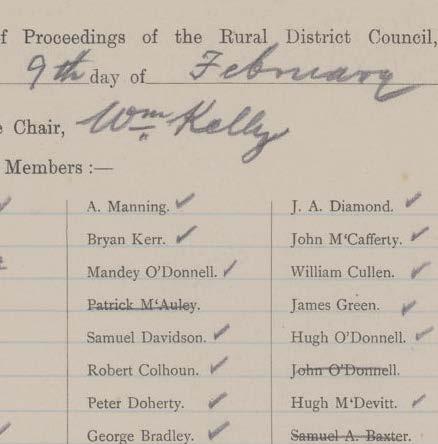 f Proceedings of the Rural District Council,
9th day of February
e Chair, Wm Kelly
Members :—
A. Manning. ✓ J. A. Diamond. ✓
Bryan Kerr. ✓ John M‘Cafferty. ✓
Mandey O’Donnell. ✓ William Cullen. ✓
Patrick M‘Auley. James Green. ✓
Samuel Davidson. ✓ Hugh O’Donnell. ✓
Robert Colhoun. ✓ John O’Donnell.
Peter Doherty. ✓ Hugh M‘Devitt. ✓
George Bradley. ✓ Samuel A. Baxter.